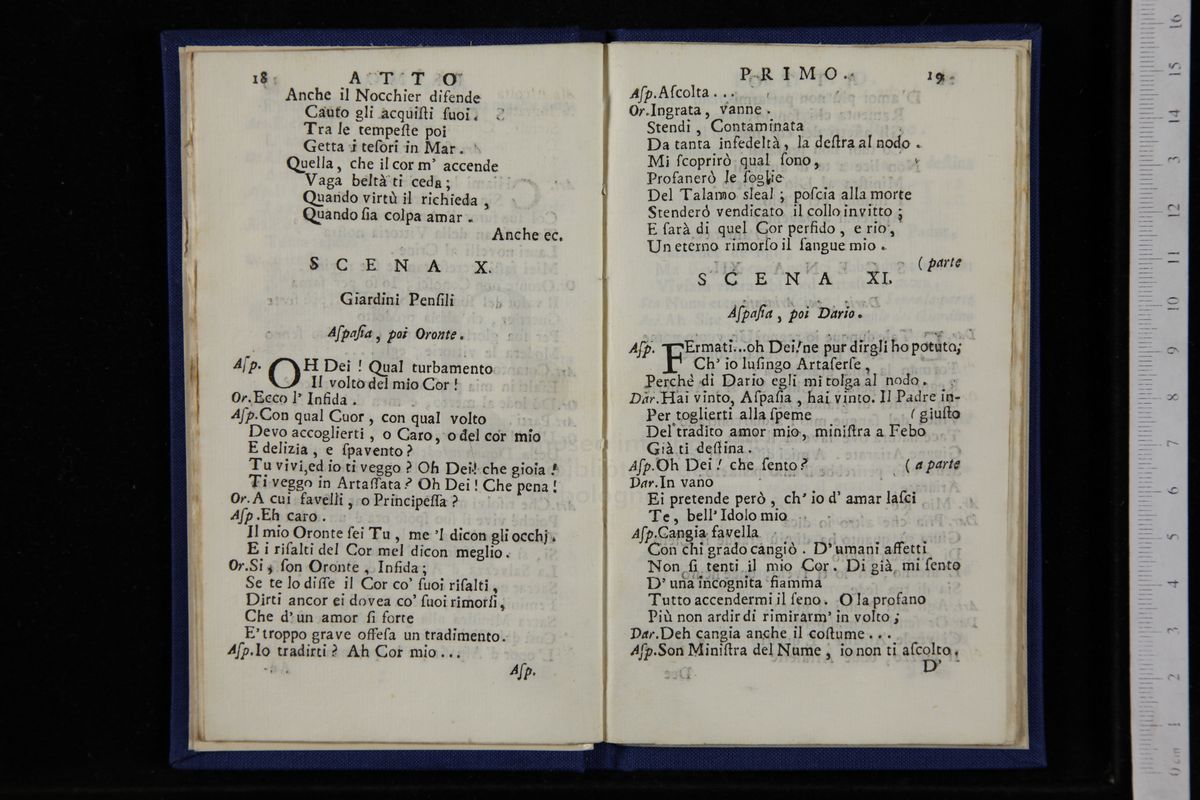 18 ATTO
Anche il Nocchier difende
Cauto gli acquiſti ſuoi.
Tra le tempeſte poi
Getta i teſori in Mar.
Quella, che il cor m' accende
Vaga beltà ti ceda;
Quando virtù il richieda,
Quando ſia colpa amar.
Anche ec.
SCENA X.
Giardini Penſili
Aſpaſia, poi Oronte.
Aſp. OH Dei! Qual turbamento
Il volto del mio Cor!
Or. Ecco l' Infida.
Aſp. Con qual Cuor, con qual volto
Devo accoglierti, o Caro, o del cor mio
E delizia, e ſpavento?
Tu vivi, ed io ti veggo? Oh Dei! che gioia!
Ti veggo in Artaſſata? Oh Dei! Che pena!
Or. A cui favelli, o Principeſſa?
Aſp. Eh caro.
Il mio Oronte ſei Tu, me 'l dicon gli occhj.
E i riſalti del Cor mel dicon meglio.
Or. Si, ſon Oronte, Infida;
Se te lo diſſe il Cor co' ſuoi riſalti,
Dirti ancor ei dovea co' ſuoi rimorſi,
Che d' un amor ſi forte
E' troppo grave offeſa un tradimento.
Aſp. Io tradirti? Ah Cor mio...
Aſp.
PRIMO. 19
Aſp. Aſcolta...
Or. Ingrata, vanne.
Stendi, Contaminata
Da tanta infedeltà, la deſtra al nodo.
Mi ſcoprirò qual ſono,
Profanerò le ſoglie
Del Talamo sleal; poſcia alla morte
Stenderó vendicato il collo invitto;
E ſarà di quel Cor perfido, e rio,
Un eterno rimorſo il ſangue mio.
(parte
SCENA XI.
Aſpaſia, poi Dario.
Aſp. FErmati...oh Dei! ne pur dirgli ho potuto;
Ch' io luſingo Artaſerſe,
Perchè di Dario egli mi tolga al nodo.
Dar. Hai vinto, Aſpaſia, hai vinto. Il Padre in-
Per toglierti alla ſpeme (giuſto
Del tradito amor mio, miniſtra a Febo
Già ti deſtina.
Aſp. Oh Dei! che ſento? (a parte
Dar. In vano
Ei pretende però, ch' io d' amar laſci
Te, bell' Idolo mio
Aſp. Cangia favella
Con chi grado cangiò. D' umani affetti
Non ſi tenti il mio Cor. Di già mi ſento
D' una incognita fiamma
Tutto accendermi il ſeno. O la profano
Più non ardir di rimirarm' in volto;
Dar. Deh cangia anche il coſtume...
Aſp. Son Miniſtra del Nume, io non ti aſcolto.
D'